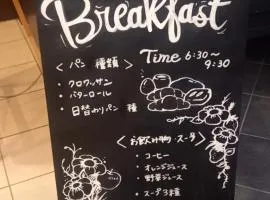 Breakfast
Time 6:30~
9:30
<パン 種類>
・クロワッサン
・バターロール
・日替わりパン 種
<お飲み物・スープ>
・コーヒー
・オレンジジュース
・野菜ジュース
・スープ3種